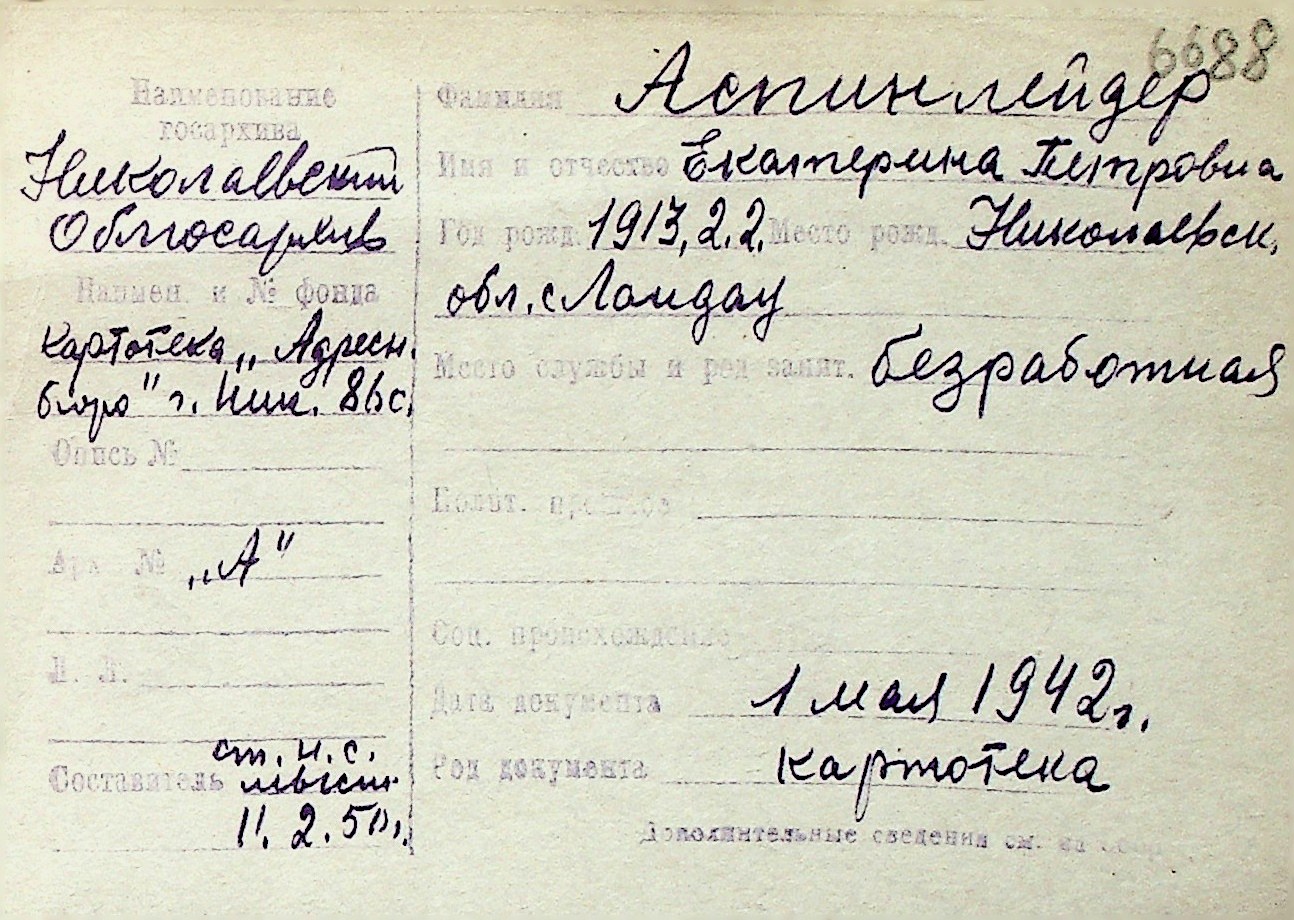 6688
Наименование
госархива
Николаевский
Облгосархив
Наимен. и № фонда
картотека „Адресн.
бюро" г. Ник. 86с.
Опись №
Арх № „А"
Л. Л.
ст. н. с.
Составитель
11. 2. 50г.
Фамилия Аспинлейдер
Имя и отчество Екатерина Петровна
Год рожд. 1913, 2.2. Место рожд. Николаевск.
обл. с Ландау
Место службы и род занят. безработная
Полит. прошлое
Соц. происхождение
Дата документа 1 мая 1942 г.
Род документа картотека
Дополнительные сведения см. на